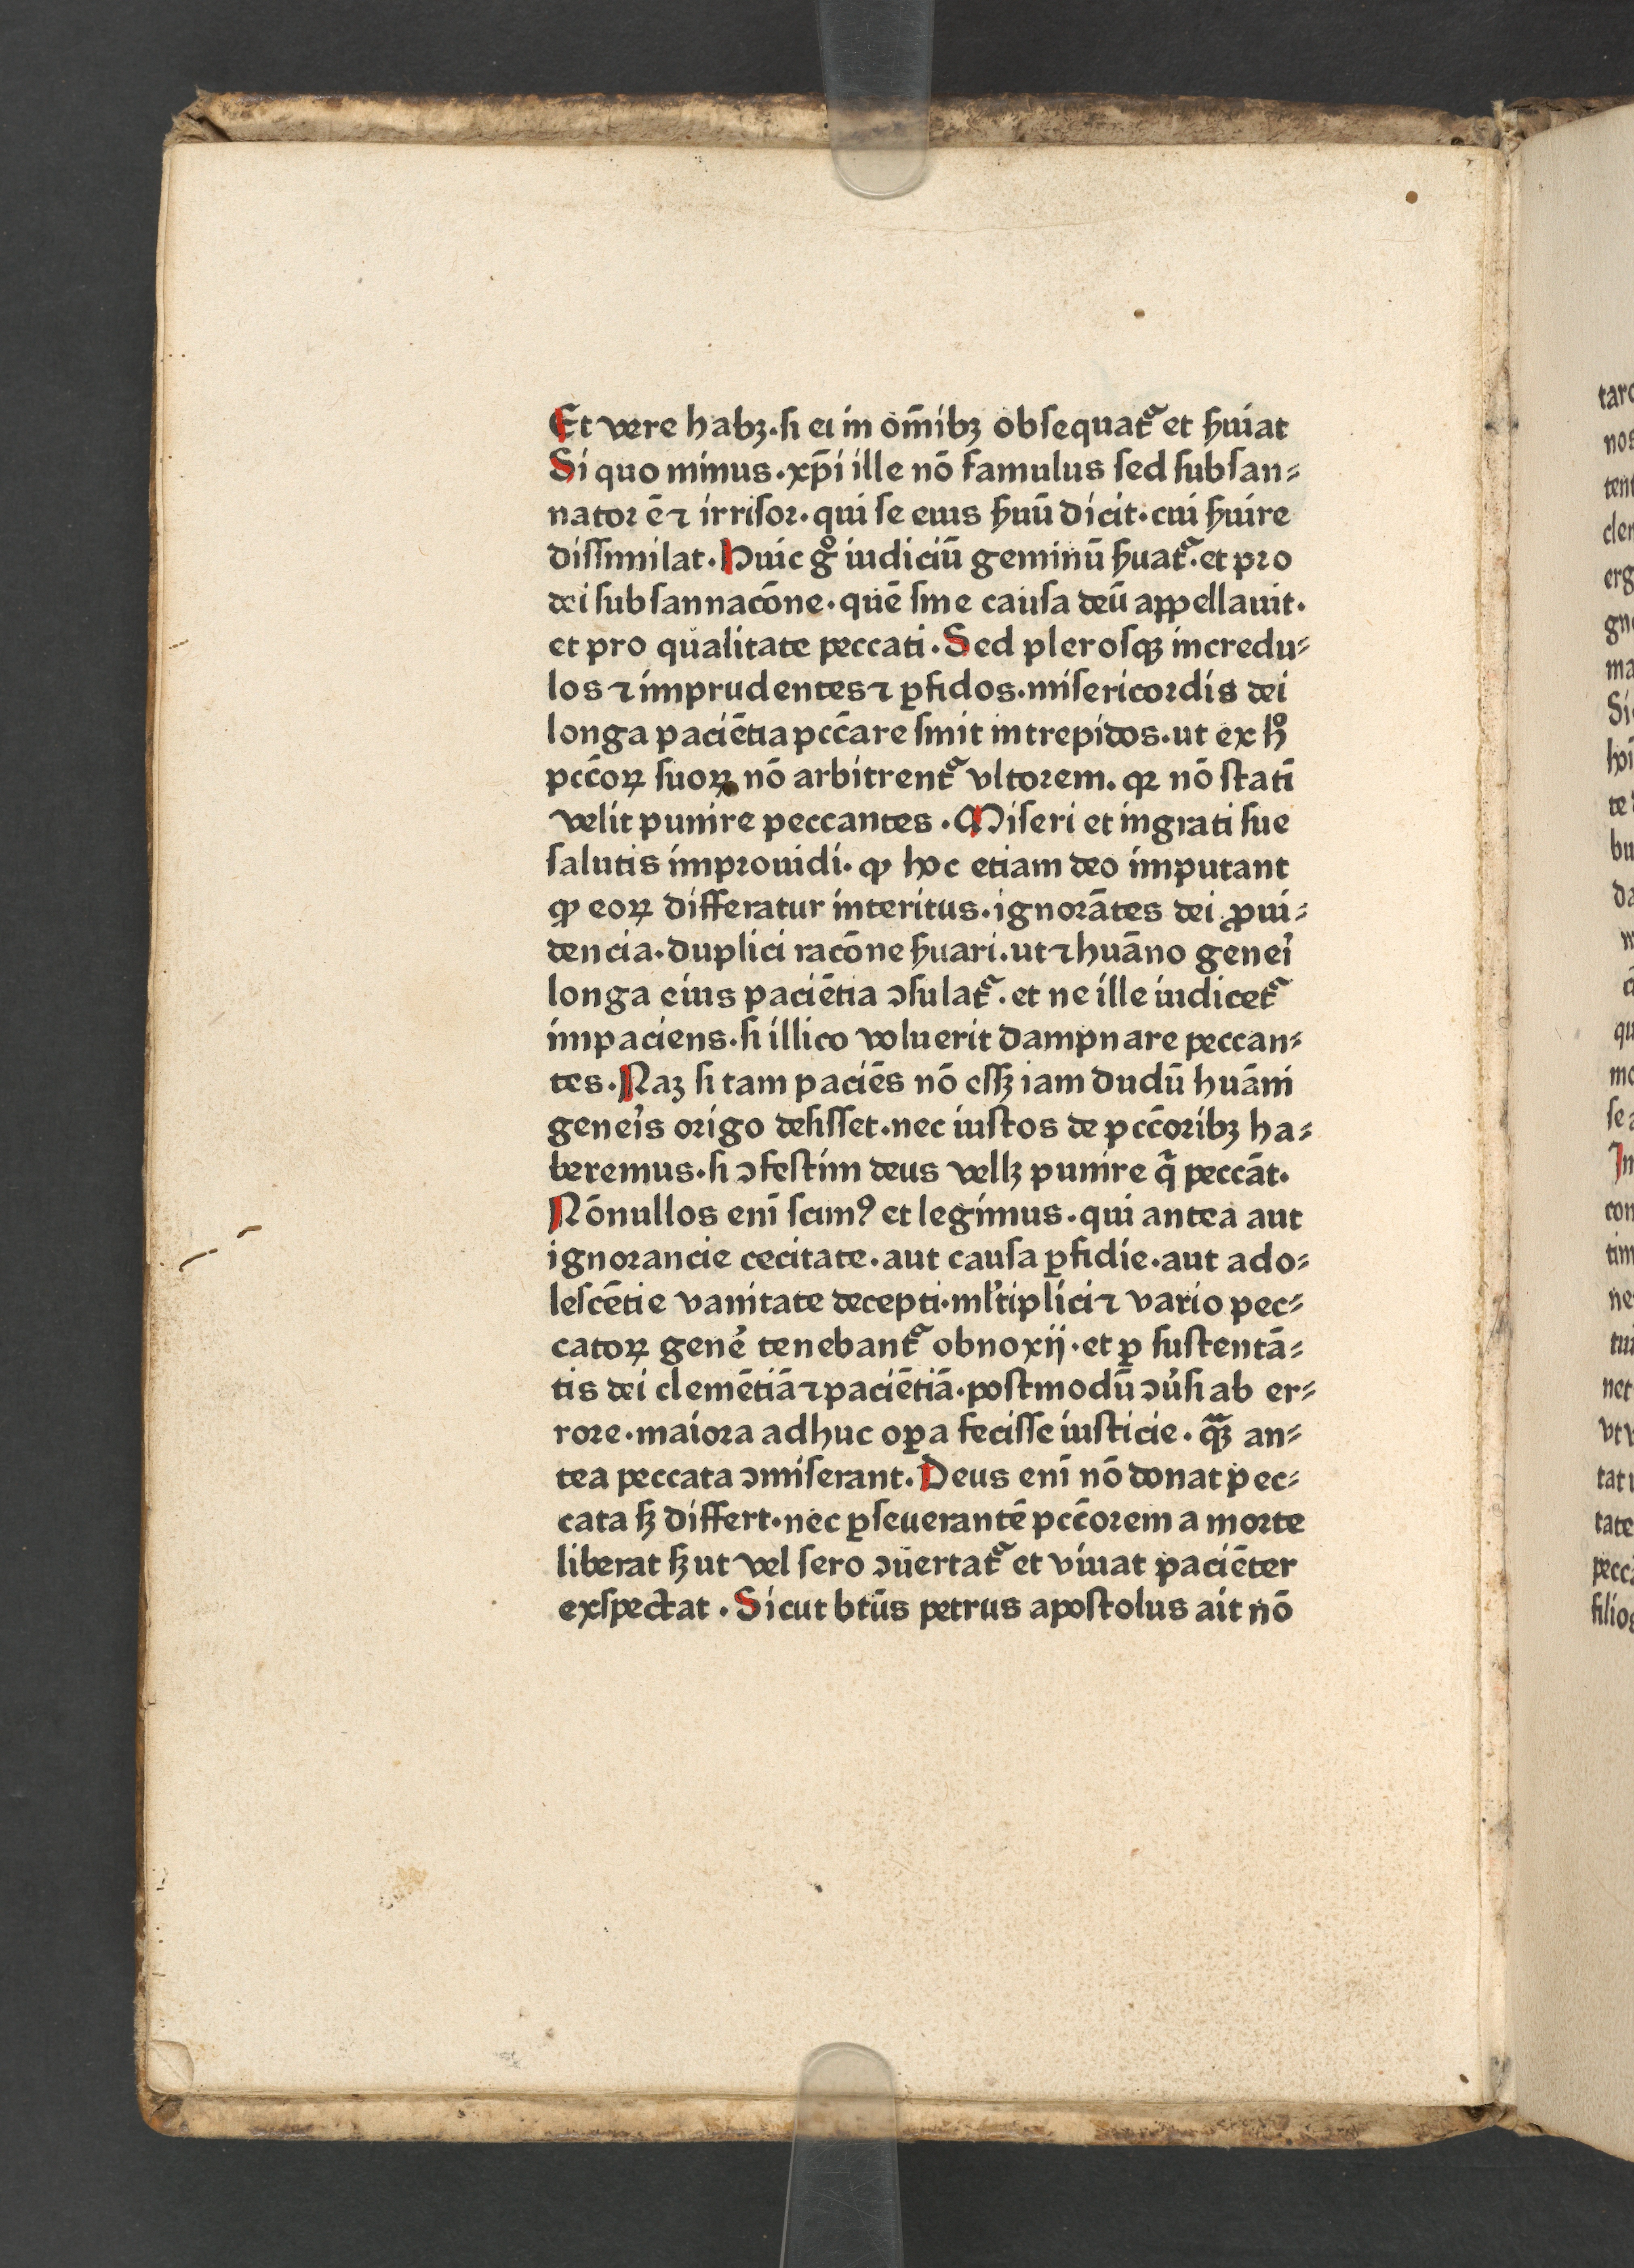 Et vere habꝫ·si ei in om̄ibꝫ obsequat᷑ et ẜuiat
Si quo minus·xp̄i ille nō famulus sed subsan⸗
nator ē⁊ irrisor·qui se eius ẜuū dicit·cui ẜuire
dissimilat·Huic gͦ iudiciū geminū ẜuat᷑·et pro
dei subsannacōne·quē sine causa deū appellauit·
et pro qualitate peccati·Sed plerosqꝫ incredu⸗
los ⁊ imprudentes ⁊ ꝑfidos·misericordis dei
longa paciētia pcc̄are sinit intrepidos·ut ex hͦ
pcc̄oꝝ suoꝝ nō arbitrent᷑ vltorem·qꝛ nō statī
velit punire peccantes·Miseri et ingrati sue
salutis improuidi·ꝙ hoc etiam deo imputant
ꝙ eoꝝ differatur interitus·ignorātes dei ꝓui⸗
dencia·duplici racōne ẜuari·ut ⁊ huāno genei᷑
longa eius paciētia ɔsulat᷑·et ne ille iudicet᷑
impaciens·si illico voluerit dampnare peccan⸗
tes·Naꝫ si tam paciēs nō essꝫ iam dudū huāni
genei᷑s origo desisset·nec iustos de pcc̄oribꝫ ha⸗
beremus·si ɔfestim deus vellꝫ punire q̄ peccāt·
Nōnullos enī scimꝰ et legimus·qui antea aut
ignorancie cecitate·aut causa ꝑfidie·aut ado⸗
lescētie vanitate decepti·ml᷑tiplici ⁊ vario pec⸗
catoꝝ gene᷑ tenebant᷑ obnoxij·et ꝑ sustentā⸗
tis dei clemētiā ⁊ paciētiā·postmodū ɔu᷑si ab er⸗
rore·maiora adhuc oꝑa fecisse iusticie·qꝫ̄ an⸗
tea peccata ɔmiserant·Deus enī nō donat pec⸗
cata sꝫ differt·nec ꝑseuerantē pcc̄orem a morte
liberat sꝫ ut vel sero ɔuertat᷑ et viuat paciēter
exspectat·Sicut btūs petrus apostolus ait nō